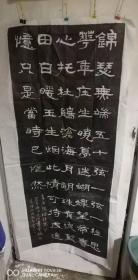 錦瑟無端五十弦一弦一柱思
華年莊生曉夢迷蝴蝶望帝春
心托杜鵑滄海月明珠有淚藍
田日暖玉生煙此情可待成追
憶只是當時已惘然